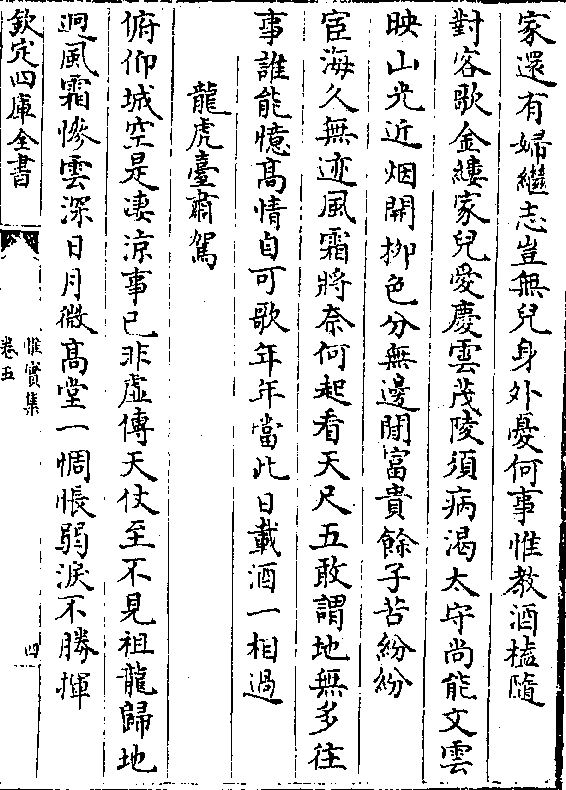 家還有婦繼志豈無兒身外憂何事惟教酒榼隨
對客歌金縷家兒愛慶雲茂陵須病渴太守尚能文雲
映山光近烟開柳色分無邊閒富貴餘子苦紛紛
宦海久無迹風霜將奈何起看天尺五敢謂地無多往
事誰能憶高情自可歌年年當此日載酒一相過
龍虎臺齋駕
俯仰城空是凄涼事已非虛傳天仗至不見祖龍歸地
迥風霜慘雲深日月微高堂一惆悵弱淚不勝揮
欽定四庫全書
惟實集
卷五
四